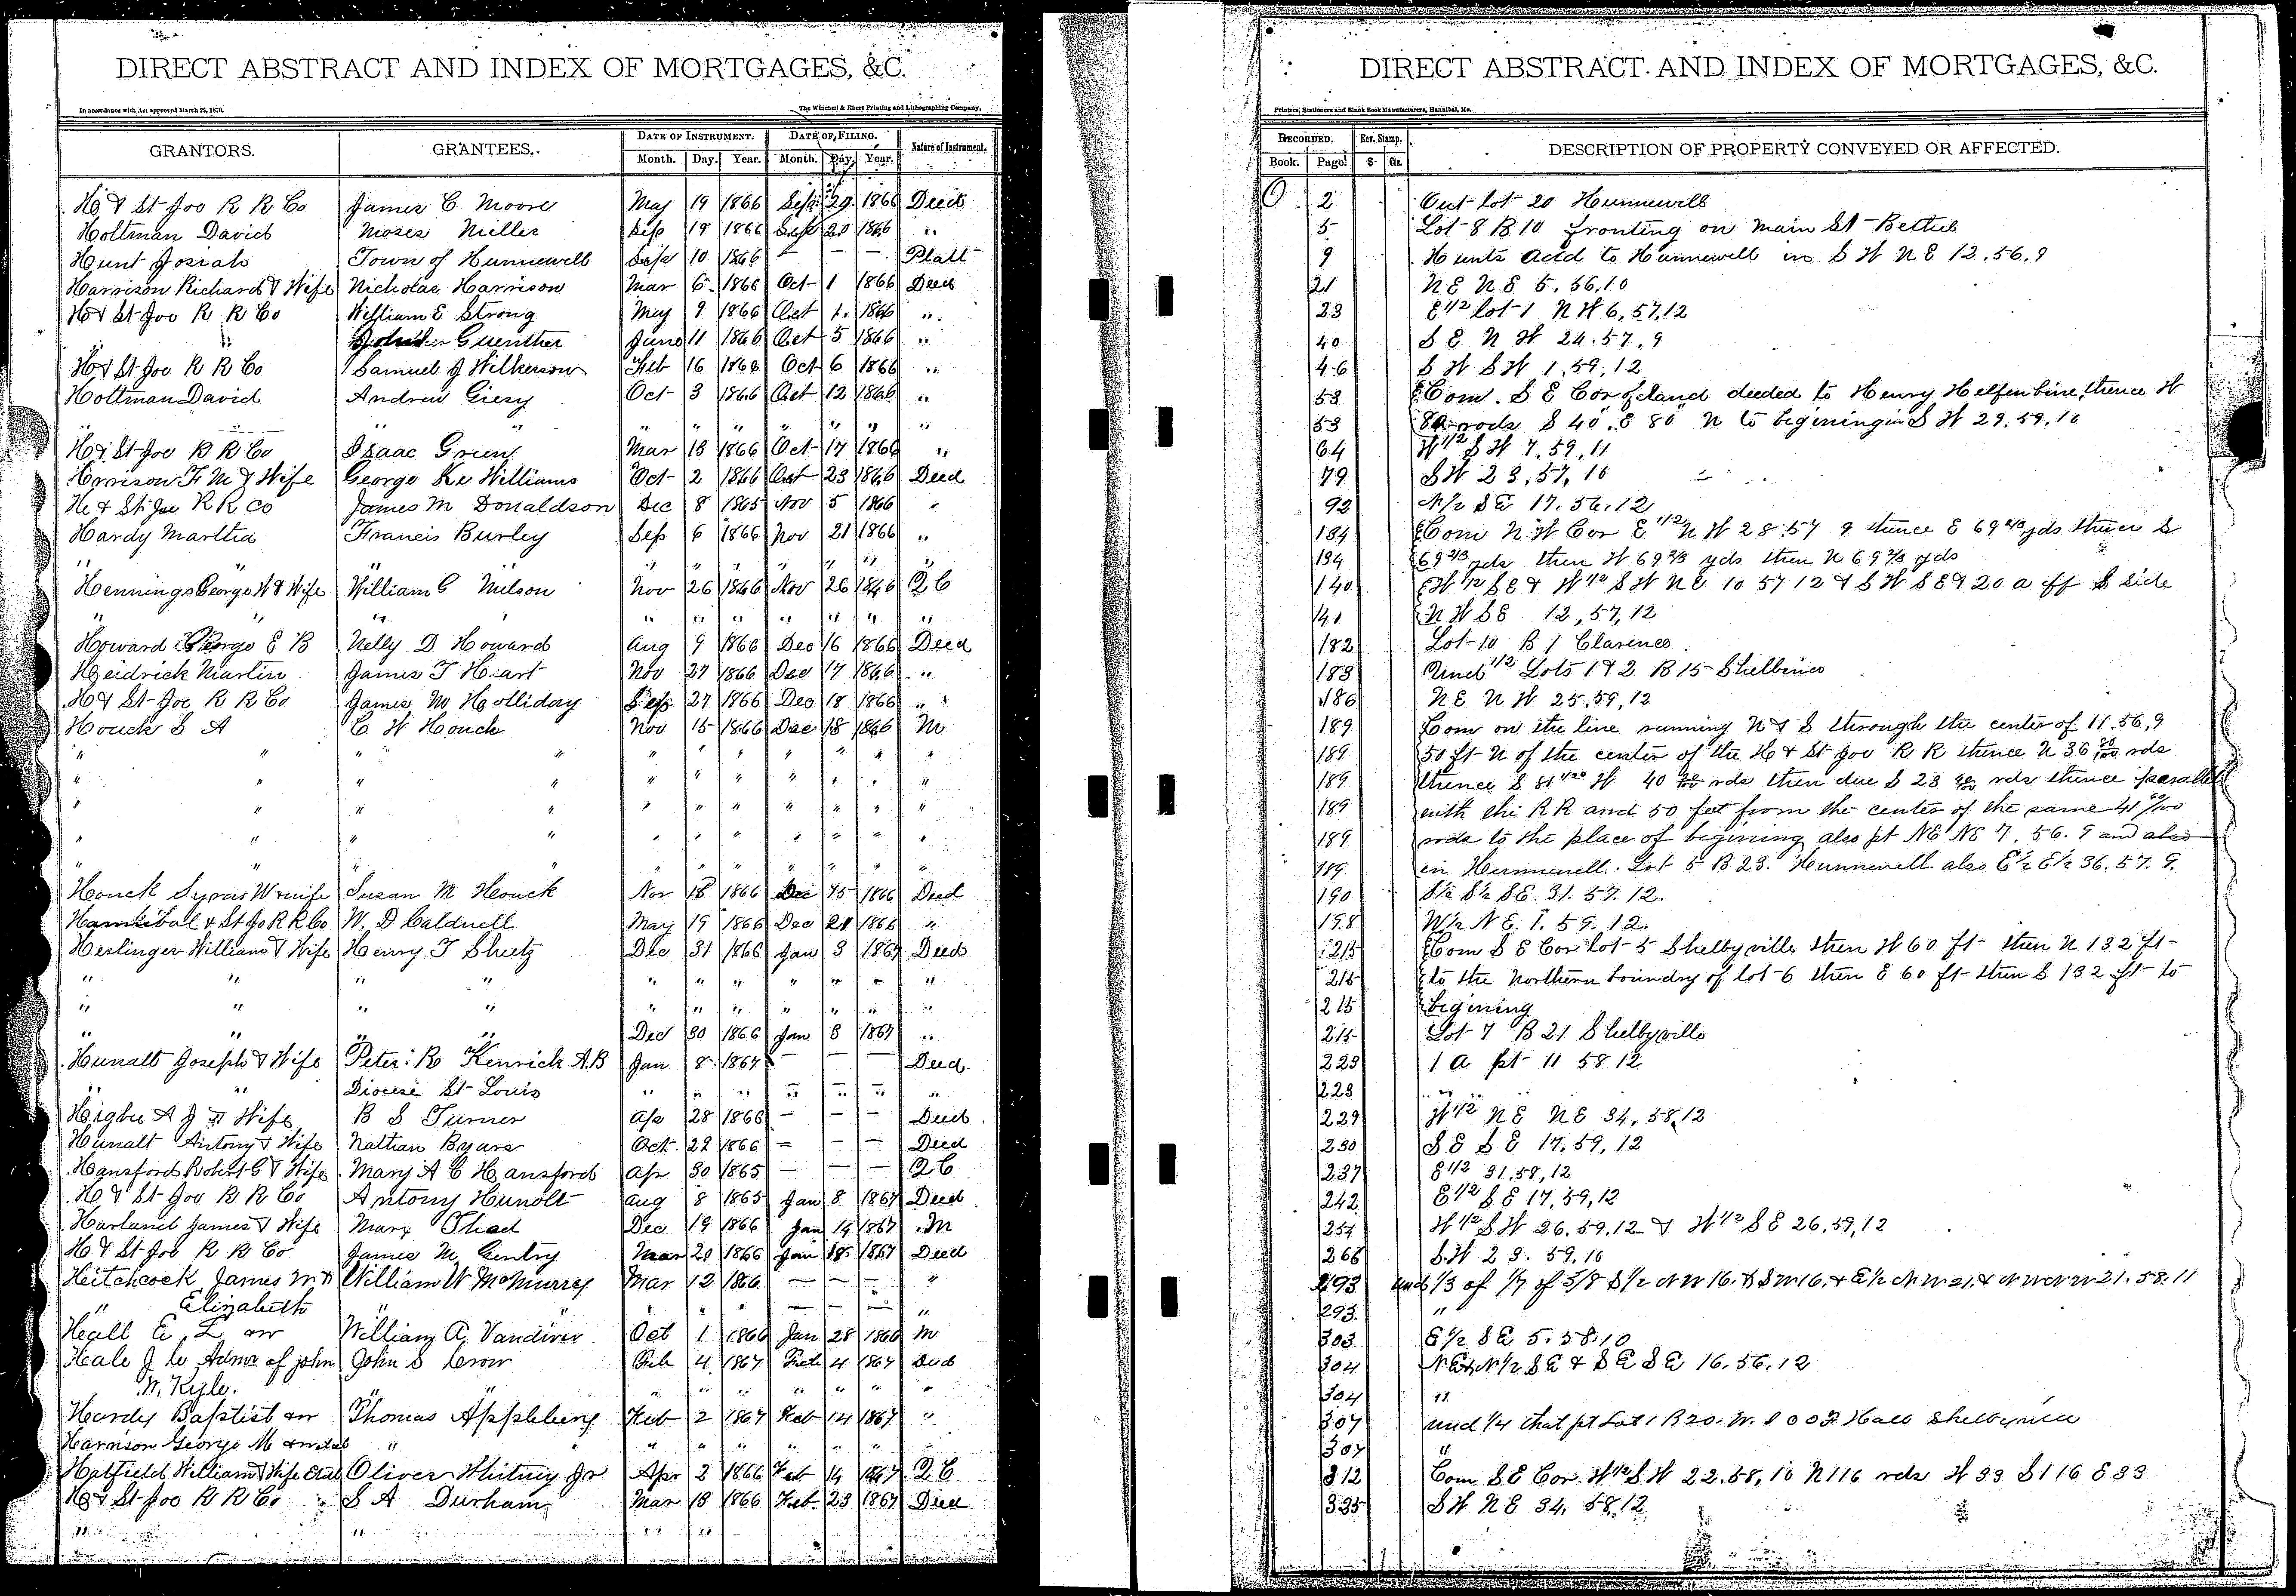 DIRECT ABSTRACT AND INDEX OF MORTGAGES, &C.
In accordance with Act approved March 25, 1870.
The Winchell & Ebert Printing and Lithographing Company,
GRANTORS. GRANTEES. DATE OF INSTRUMENT. DATE OF FILING. Nature of Instrument.
Month. Day. Year. Month. Day. Year.
H & St Joe R R Co James C Moore May 19 1866 Sep 29 1866 Deed
Holtman David Moses Miller Sep 19 1866 Sep 20 1866 "
Hunt Josiah Town of Hunnewell Sep 10 1866 — — — Platt
Harrison Richard & Wife Nicholas Harrison Mar 6 1866 Oct 1 1866 Deed
H & St Joe R R Co William E Strong May 9 1866 Oct 1 1866 "
" Guenther June 11 1866 Oct 5 1866 "
H & St Joe R R Co Samuel J Wilkerson Feb 16 1866 Oct 6 1866 "
Holtman David Andrew Giesy Oct 3 1866 Oct 12 1866 "
" " " " " " " " "
H & St Joe R R Co Isaac Green Mar 13 1866 Oct 17 1866 "
Hrrison F M & Wife George Ke Williams Oct 2 1866 Oct 23 1866 Deed
H & St Joe R R Co James M Donaldson Dec 8 1865 Nov 5 1866 "
Hardy Martha Francis Burley Sep 6 1866 Nov 21 1866 "
" " " " " " " "
Hennings George W & Wife William G Nilson Nov 26 1866 Nov 26 1866 Q C
" " " " " " " " "
Howard George E B Nelly D Howard Aug 9 1866 Dec 16 1866 Deed
Heidrick Martin James T Hart Nov 27 1866 Dec 17 1866 "
H & St Joe R R Co James M Holliday Sep 27 1866 Dec 18 1866 "
Houck S A C W Houck Nov 15 1866 Dec 18 1866 M
" " " " " " " " " " "
" " " " " " " " " " "
" " " " " " " " " " "
" " " " " " " " " " "
" " " " " " " " " "
Houck Syrus W wife Susan M Houck Nov 15 1866 Dec 15 1866 Deed
Hannibal & St Jo R R Co W. D Caldwell May 19 1866 Dec 21 1866 "
Heslinger William & Wife Henry T Sheetz Dec 31 1866 Jan 3 1867 Deed
" " " " " " " " " " "
" " " " " " " " " " "
" " " " Dec 30 1866 Jan 3 1867 "
Hunalt Joseph & Wife Peter R Kenrick A.B Jan 8 1867 — — — Deed
" " Diocese St Louis " " " " " " "
Higbe A J & Wife B S Turner Ap 28 1866 — — — Deed
Hunalt Antony & Wife Nathan Byars Oct 22 1866 — — — Deed
Hansford Robert G & Wife Mary A C Hansford Apr 30 1865 — — — Q C
H & St Joe R R Co Antony Hunolt Aug 8 1865 Jan 8 1867 Deed
Harland James & Wife Mary Shed Dec 19 1866 Jan 14 1867 M
H & St Joe R R Co James M Gentry Mar 20 1866 Jan 18 1867 Deed
Hitchcock James M & William W McMurrey Mar 12 1866 — — — "
" Elizabeth " " " — — — "
Hall E L William A Vandiver Oct 1 1866 Jan 28 1866 M
Hale J C Admr of John John S Crow Feb 4 1867 Feb 4 1867 Deed
W. Kyle. " " " " " " " " "
Hardy Baptist Thomas Appleberg Feb 2 1867 Feb 14 1867 "
Harrison George M " " " " " " " "
Hatfield William & Wife Etal Oliver Whitney Jr Apr 2 1866 Feb 14 1867 Q C
H & St Joe R R Co S A Durham Mar 13 1866 Feb 23 1867 Deed
" " " "
DIRECT ABSTRACT AND INDEX OF MORTGAGES, &C.
Printers, Stationers and Blank Book Manufacturers, Hannibal, Mo.
RECORDED. Rev. Stamp. DESCRIPTION OF PROPERTY CONVEYED OR AFFECTED.
Book. Page $ Cts.
O 2 Out Lot 20 Hunnewell
5 Lot 8 B 10 fronting on Main St Bethel
9 Hunts Add to Hunnewell in S W N E 12, 56, 9
21 N E N E 5, 56, 10
23 E 1/2 lot 1 N W 6, 57, 12
40 S E N W 24, 57, 9
46 S W S W 1, 59, 12
53 Com. S E Cor of land deeded to Henry Helfenbine, thence W
53 80 rods S 40, E 80 N to begining in S W 29, 59, 10
64 W 1/2 S W 7, 59, 11
79 S W 23, 57, 10
92 N/2 S E 17. 56. 12
134 Com N.W Cor E 1/2 N W 28, 57 9 thence E 69 2/3 yds thence S
134 69 2/3 yds then W 69 2/3 yds then N 69 2/3 yds
140 W 1/2 S E & W 1/2 S W N E 10 57 12 & S W S E 9 20 a off S side
141 N W S E 12, 57, 12
182 Lot 10 B 1 Clarence
183 Und 1/2 Lots 1 & 2 B 15 Shelbina
186 N E N W 25, 59, 12
189 Com on the line running N & S through the center of 11. 56, 9
189 50 ft N of the center of the H & St Joe R R thence N 36 rds
189 thence S 81 1/20 W 40 rds then due S 23 rds thence parallel
189 with the R R and 50 feet from the center of the same 41 rods
189 rods to the place of begining also pt NE NE 7. 56. 9 and also
189 in Hunnewell. Lot 5 B 23. Hunnewell also E 1/2 E 1/2 36. 57. 9.
190 S 1/2 S 1/2 SE. 31. 57. 12.
198 W/2 N E. 1. 59. 12.
215 Com S E Cor lot 5 Shelbyville then W 60 ft then N 132 ft
215 to the Northern boundry of lot 6 then E 60 ft then S 132 ft to
215 begining
215 Lot 7 B 21 Shelbyville
223 1 A pt 11 58 12
223 " "
229 W 1/2 N E N E 34, 58, 12
230 S E S E 17, 59, 12
237 E 1/2 31, 58, 12
242 E 1/2 S E 17, 59, 12
254 W 1/2 S W 26, 59, 12 & W 1/2 S E 26, 59, 12
266 S. W 23. 59. 10
293 und 1/3 of 1/7 of 3/8 S 1/2 N W 16. & S W 16. & E 1/2 N W 21. & N W N W 21. 58. 11
293. "
303 E 1/2 S E 5. 58. 10
304 N E & N/2 S E & S E S E 16. 56. 12
304 "
307 und 1/4 that pt Lot 1 B 20. Hall Shelbyville
307 "
312 Com S E Cor W 1/2 S W 22. 58, 10 N 116 rds W 33 S 116 E 33
335 S W N E 34, 58, 12